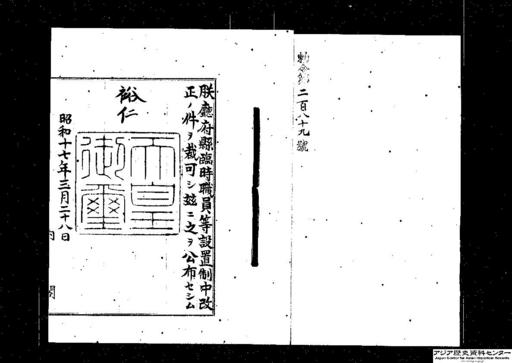 勅令第二百八十九號
朕廳府縣臨時職員等設置制中改
正ノ件ヲ裁可シ玆ニ之ヲ公布セシム
裕仁
天皇
御璽
昭和十七年三月二十八日
内閣
アジア歴史資料センター
Japan Center for Asian Historical Records